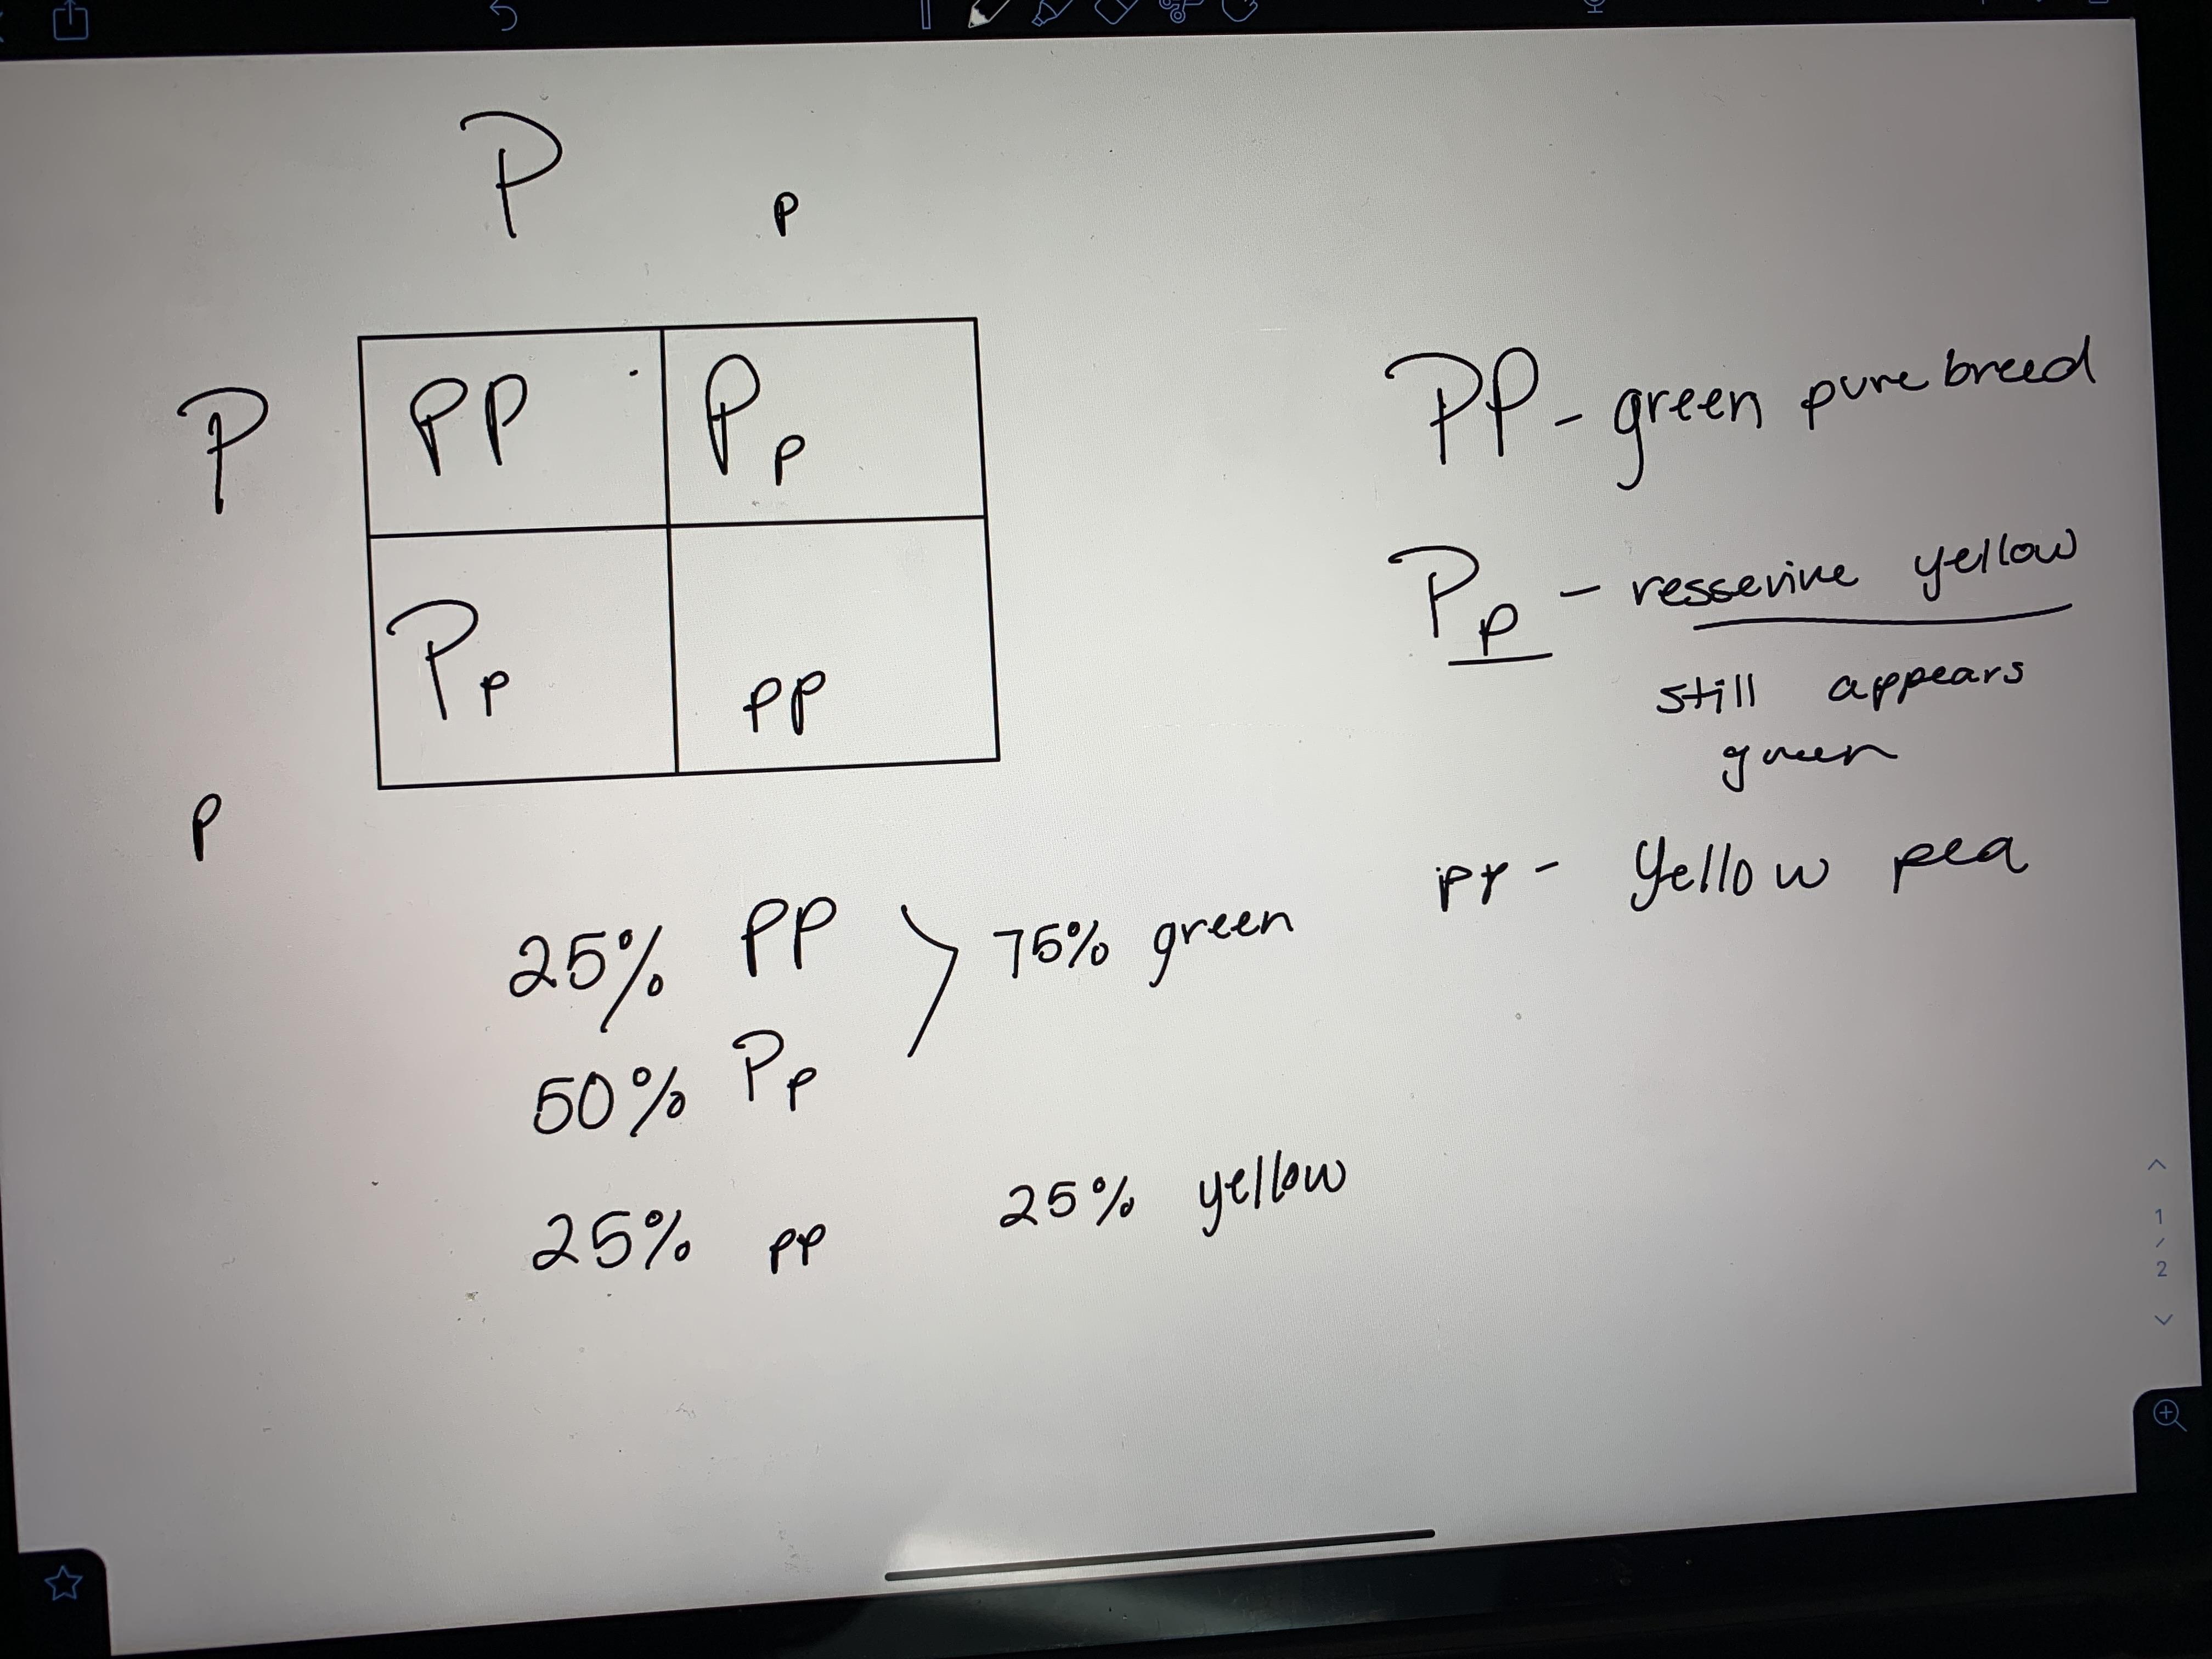 P p
P
PP Pp
Pp pp
p
25% PP 75% green
50% Pp
25% pp 25% yellow
PP - green purebreed
Pp - resserive yellow
still appears
green
pp - Yellow pea
1
/
2